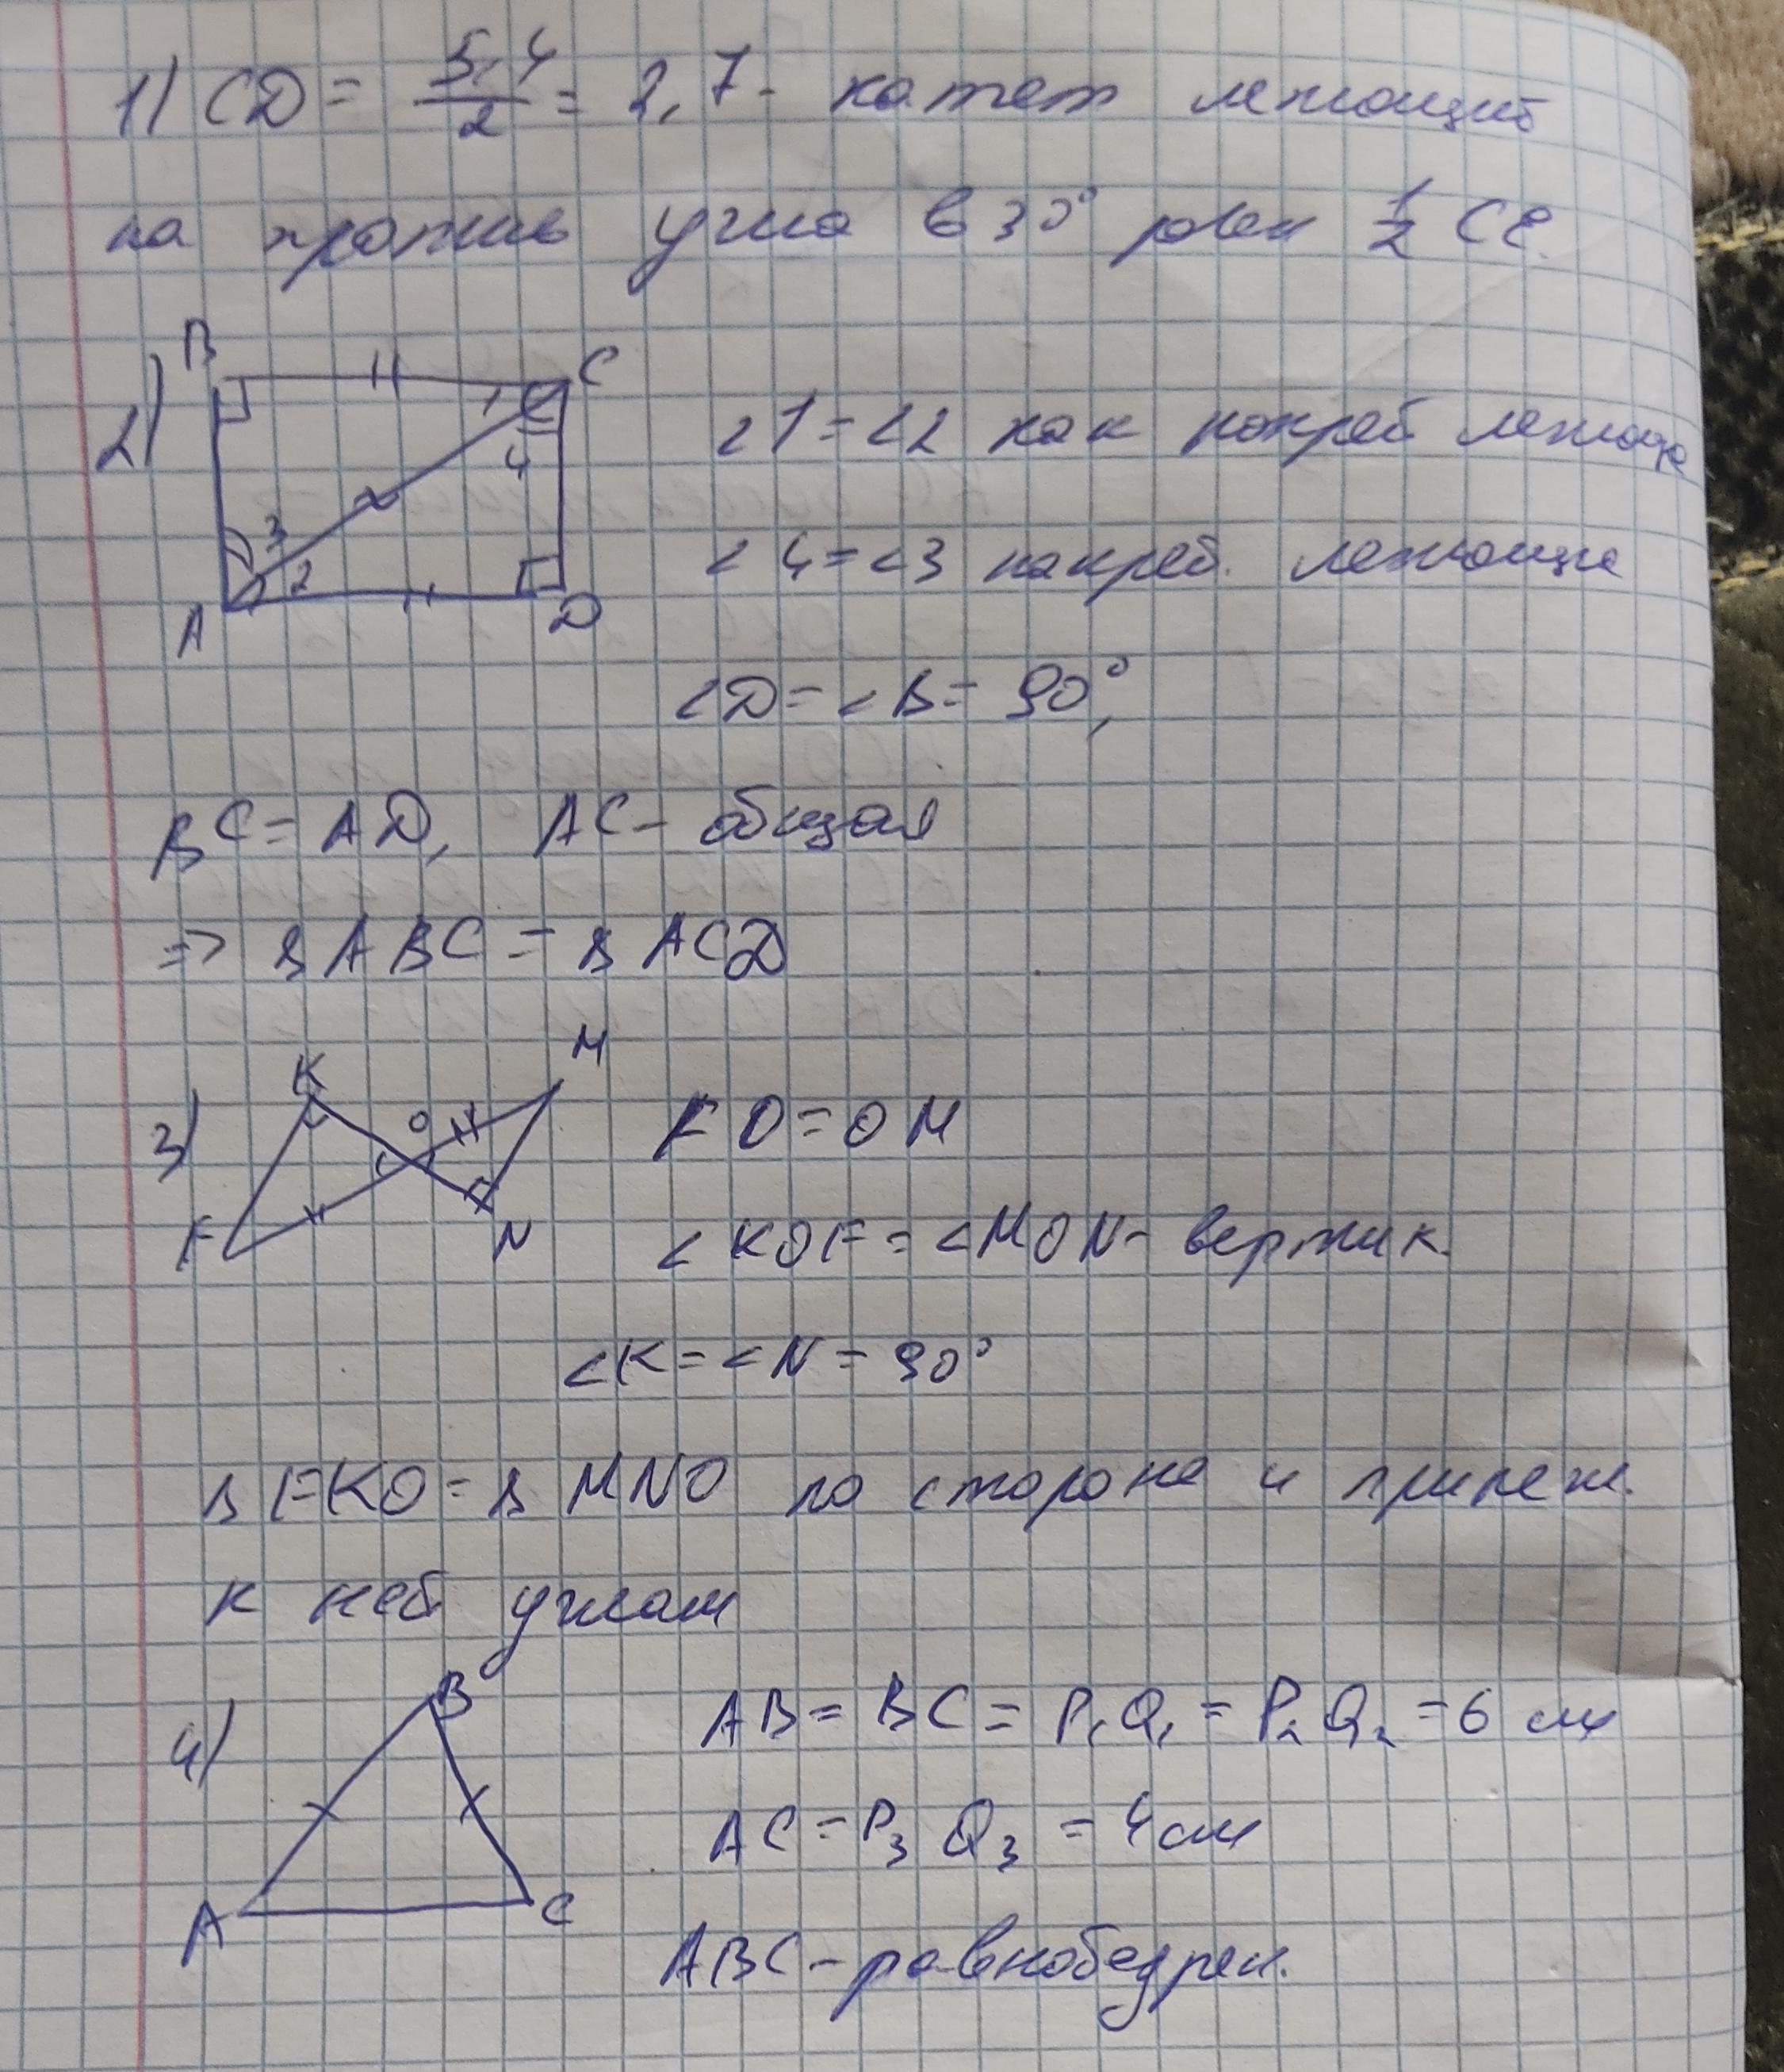 1) CD = 5,4/2 = 2,7 - катет лежащий
на против угла в 30° равен 1/2 CE.
2)
B
C
1
4
3
2
A
D
∠1 = ∠2 как накрест лежащие
∠4 = ∠3 накрест. лежащие
∠D = ∠B = 90°,
BC = AD, AC - общая
=> △ ABC = △ ACD
3)
K
M
O
F
N
FO = OM
∠KOF = ∠MON - вертик.
∠K = ∠N = 90°
△ FKO = △ MNO по стороне и прилеж.
к ней углам
4)
B
A
C
AB = BC = P₁Q₁ = P₂Q₂ = 6 см
AC = P₃Q₃ = 4 см
ABC - равнобедрен.